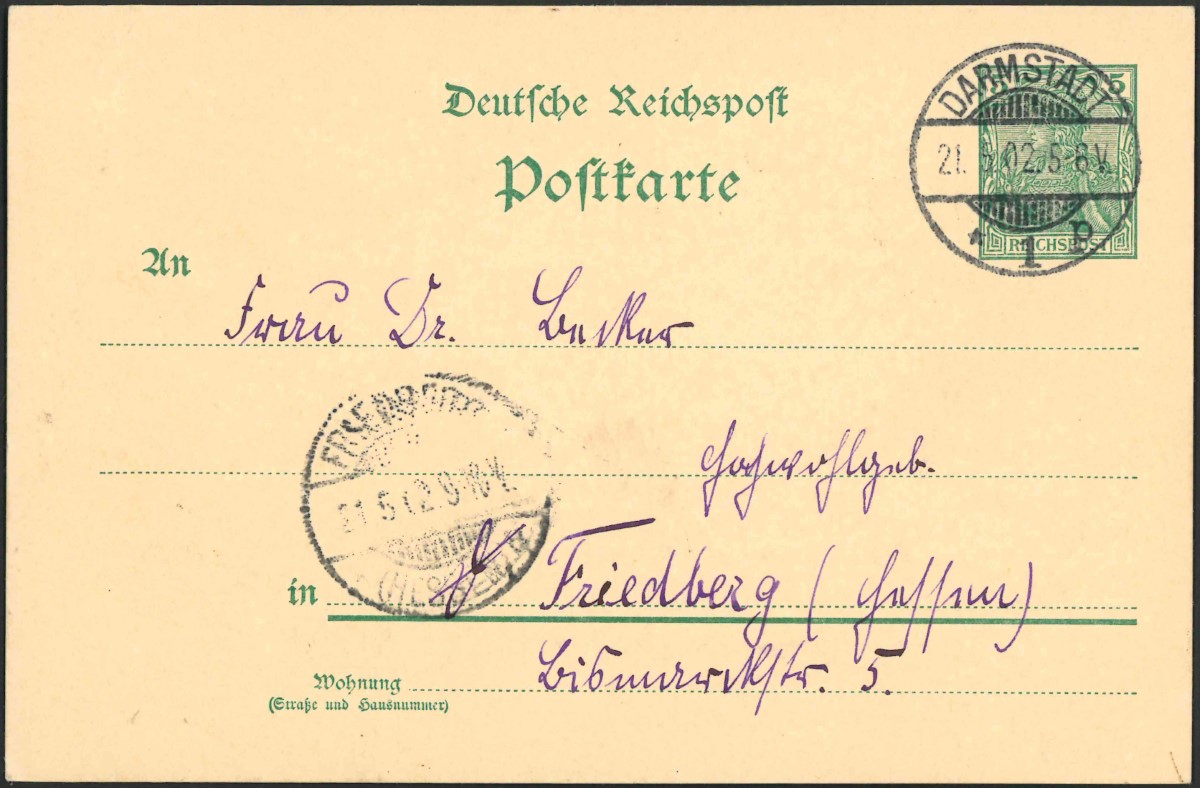 Deutsche Reichspost
Postkarte
DARMSTADT
21. 5 02. 5-6 V.
* 1 p
5
REICHSPOST
An
Frau Dr. Becker
Hochwohlgeb.
21 5 02. 9-10 V.
(HESSEN)
in Friedberg (Hessen)
Bismarckstr. 5.
Wohnung
(Straße und Hausnummer)